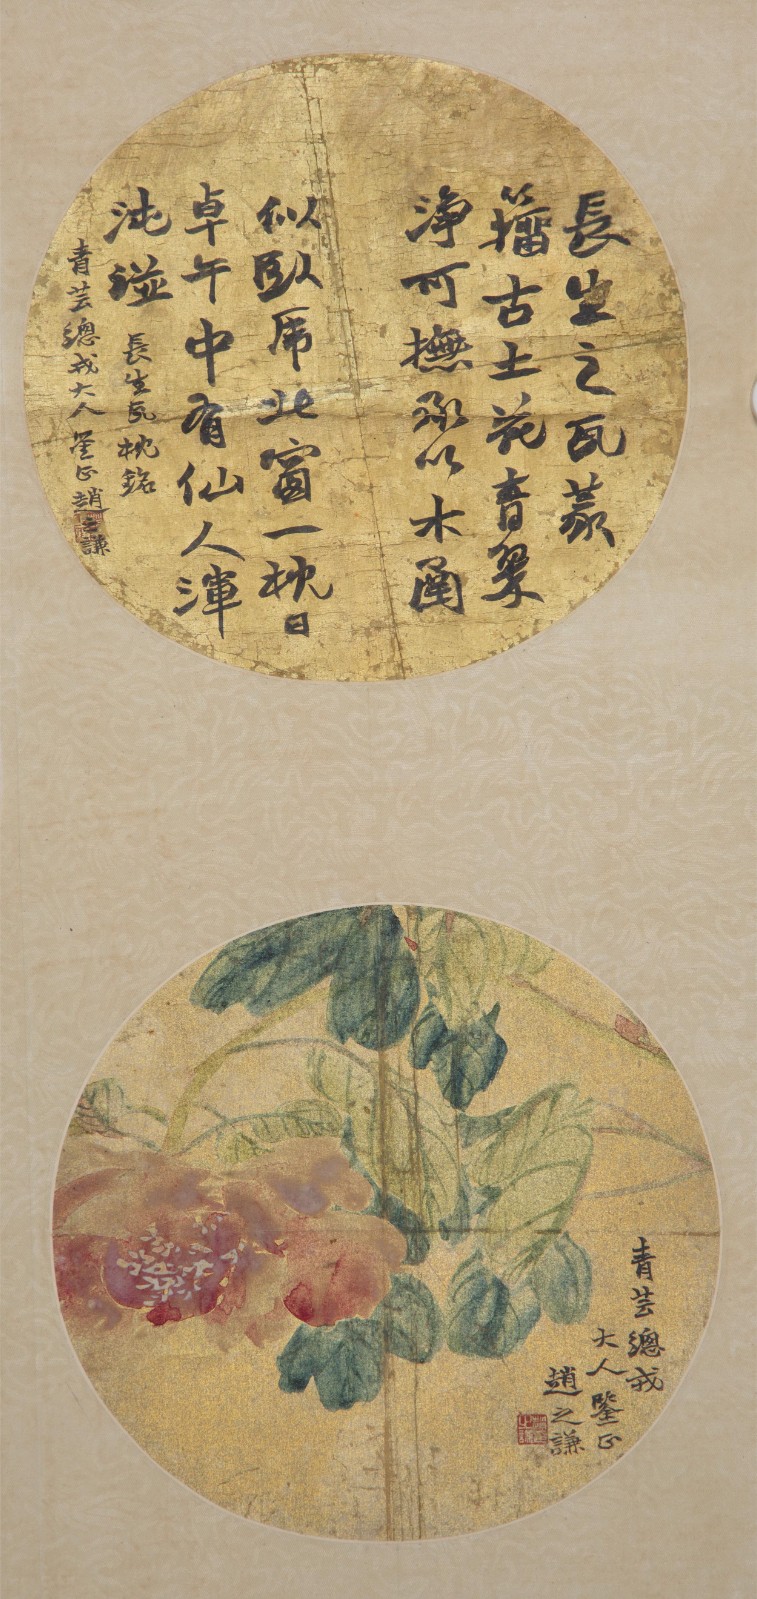 長生之瓦篆
籀古土花青翠
淨可撫承以木函
似臥虎北窗一枕日
卓午中有仙人渾
沌
長生瓦枕銘
青芸總戎大人鑒正趙之謙
青芸總戎
大人鑒正
趙之謙